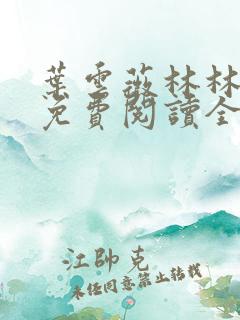 葉雲薇林林
免費閱讀全
江帥克
未经同意禁止转载